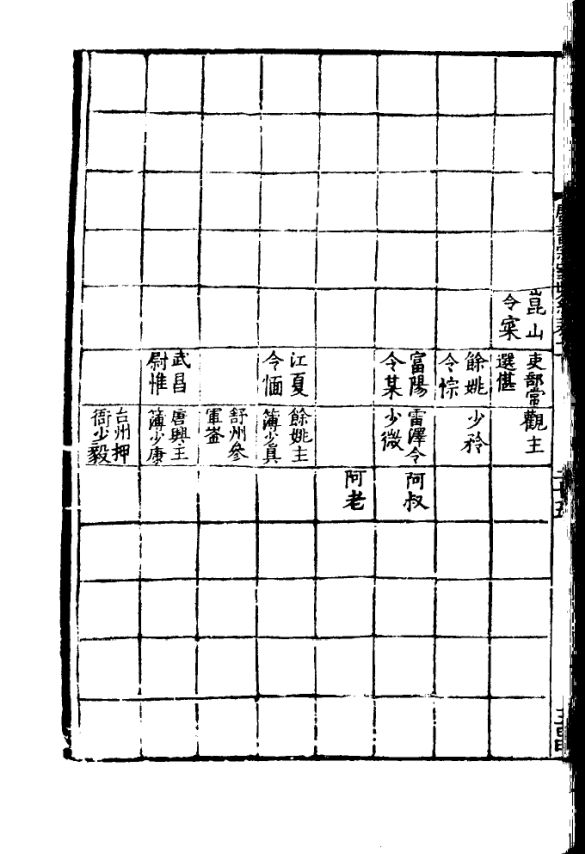 崑山
令寀
吏部常
選愖
觀主
餘姚
令悰
少矝
富陽
令某
雷澤令
少微
阿叔
阿老
江夏
令愐
餘姚主
簿少真
舒州參
軍崟
武昌
尉惟
唐興主
簿少康
台州押
衙少毅